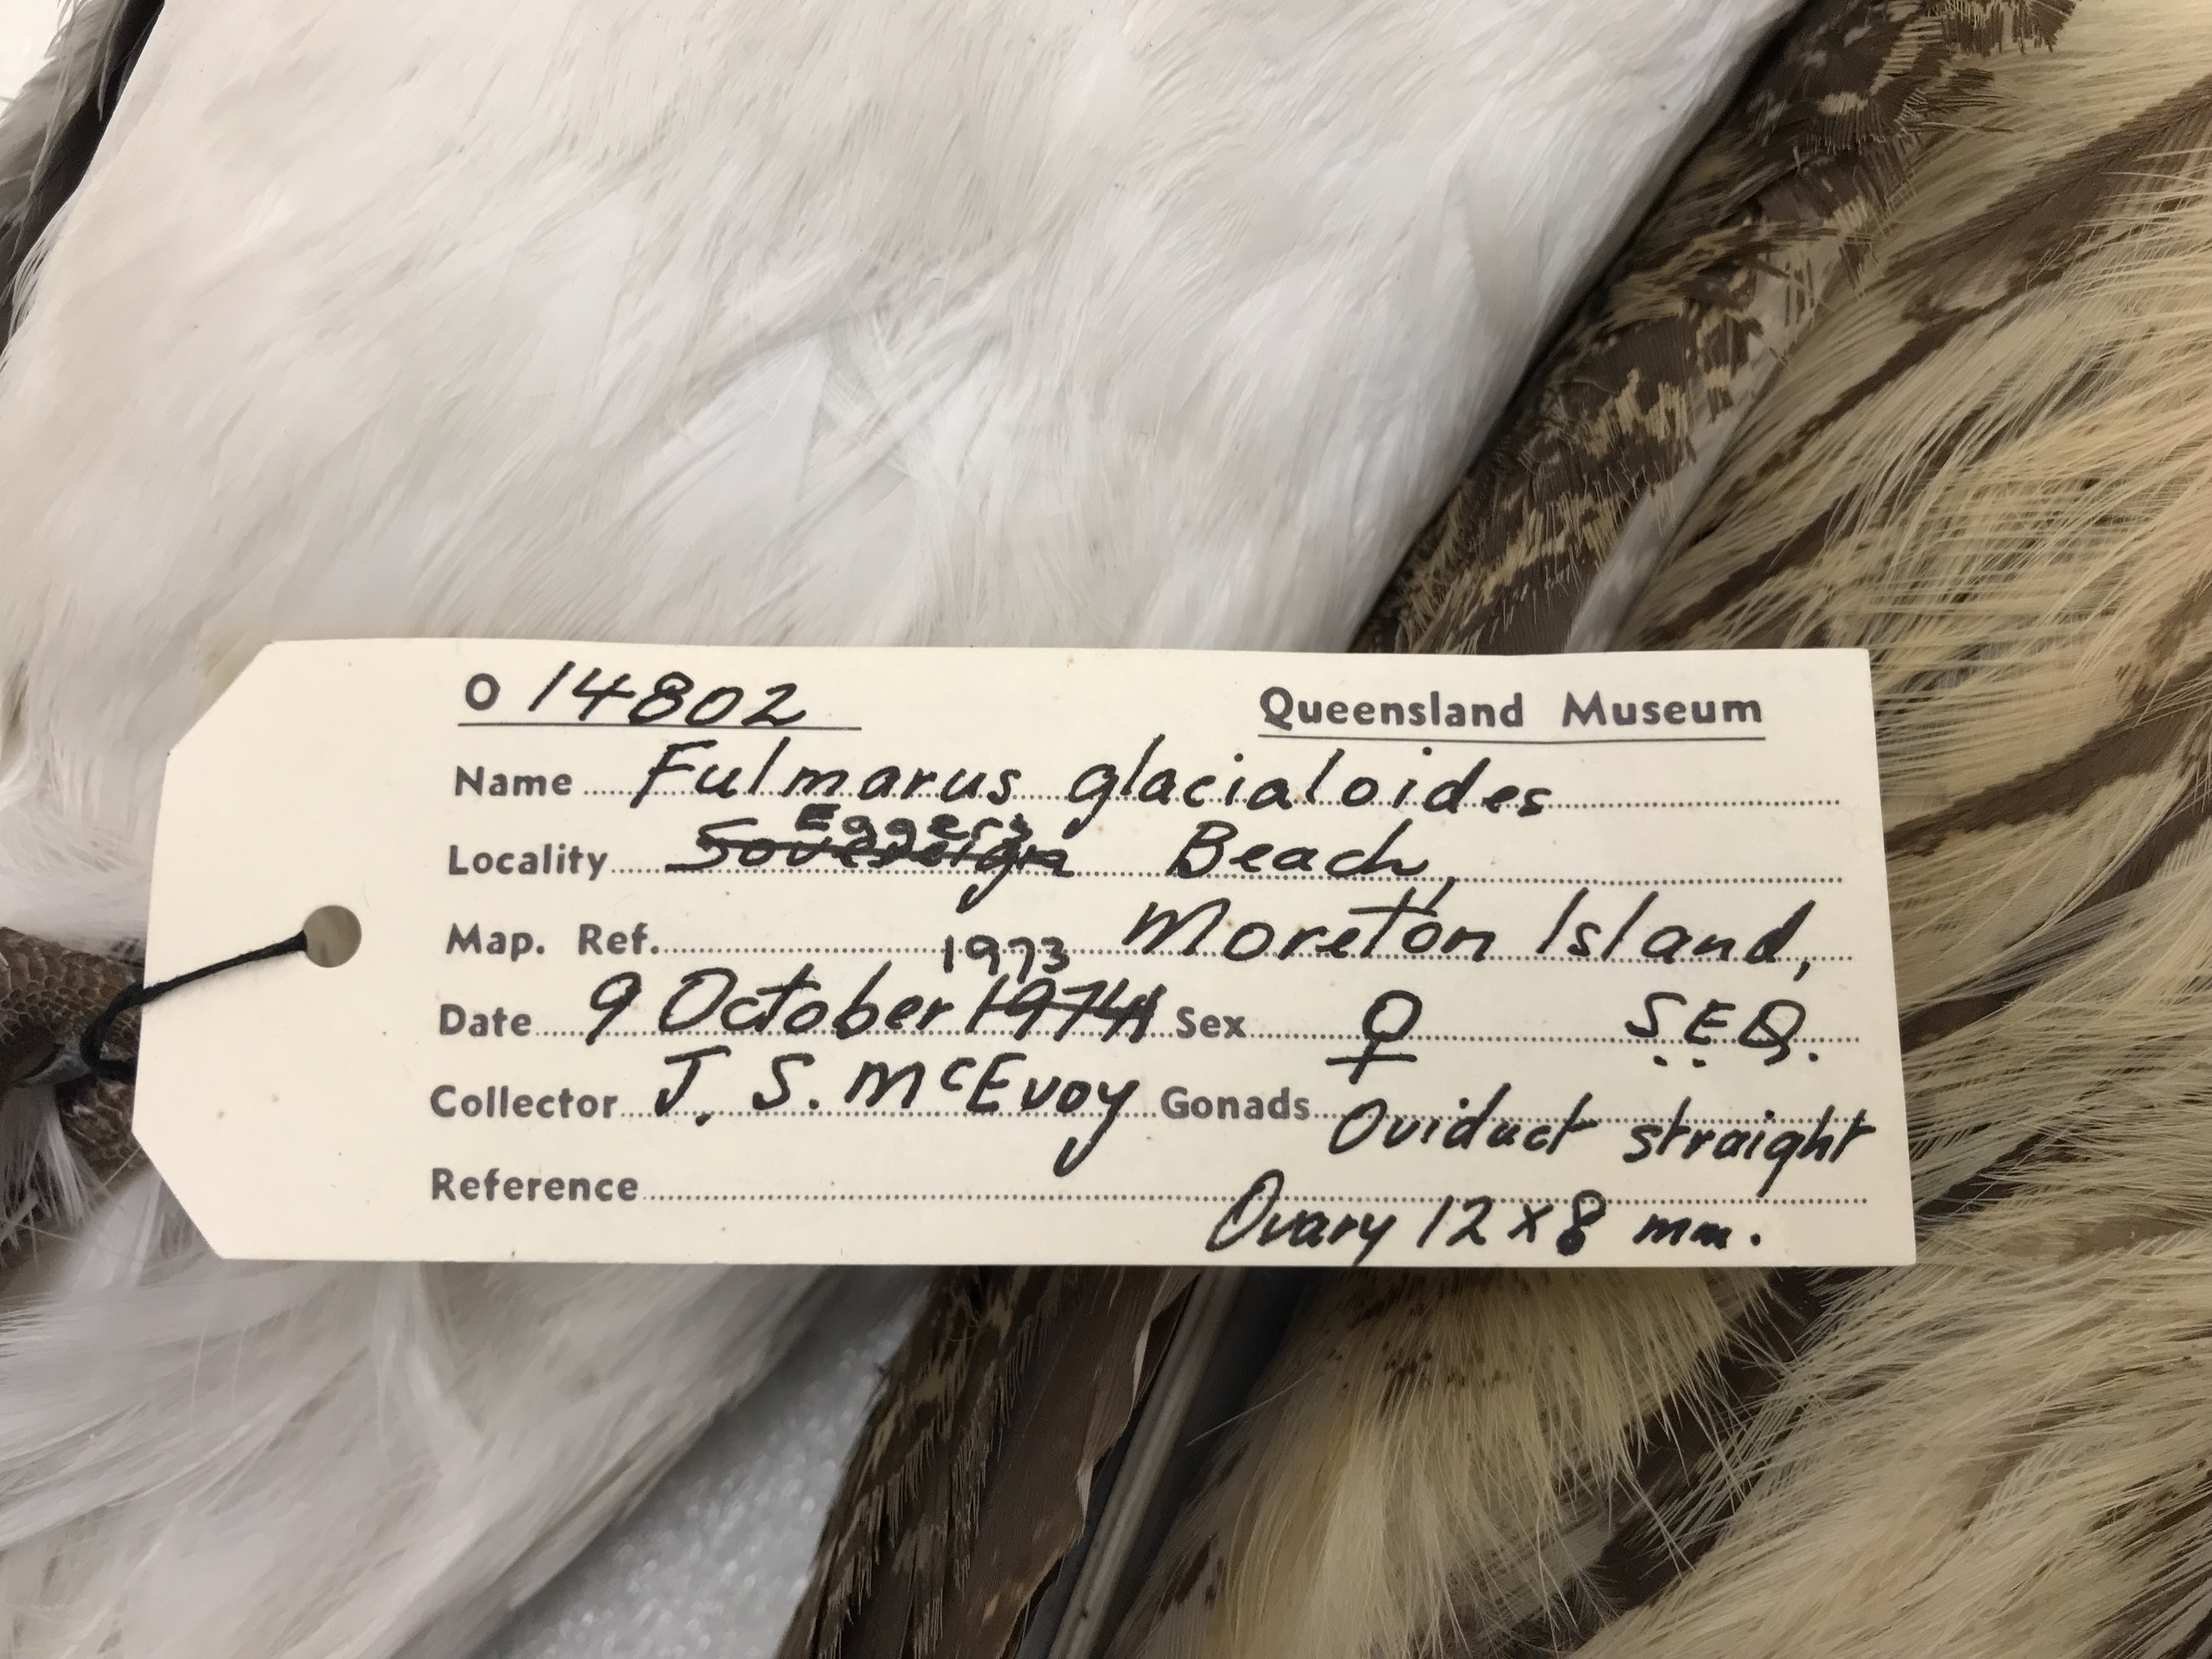 O 14802 Queensland Museum
Name Fulmarus glacialoides
Eagers
Locality Sovereign Beach,
Map. Ref. Moreton Island,
1973
Date 9 October 1974 Sex ♀ S.E.Q.
Collector J. S. McEvoy Gonads Oviduct straight
Reference Ovary 12 x 8 mm.